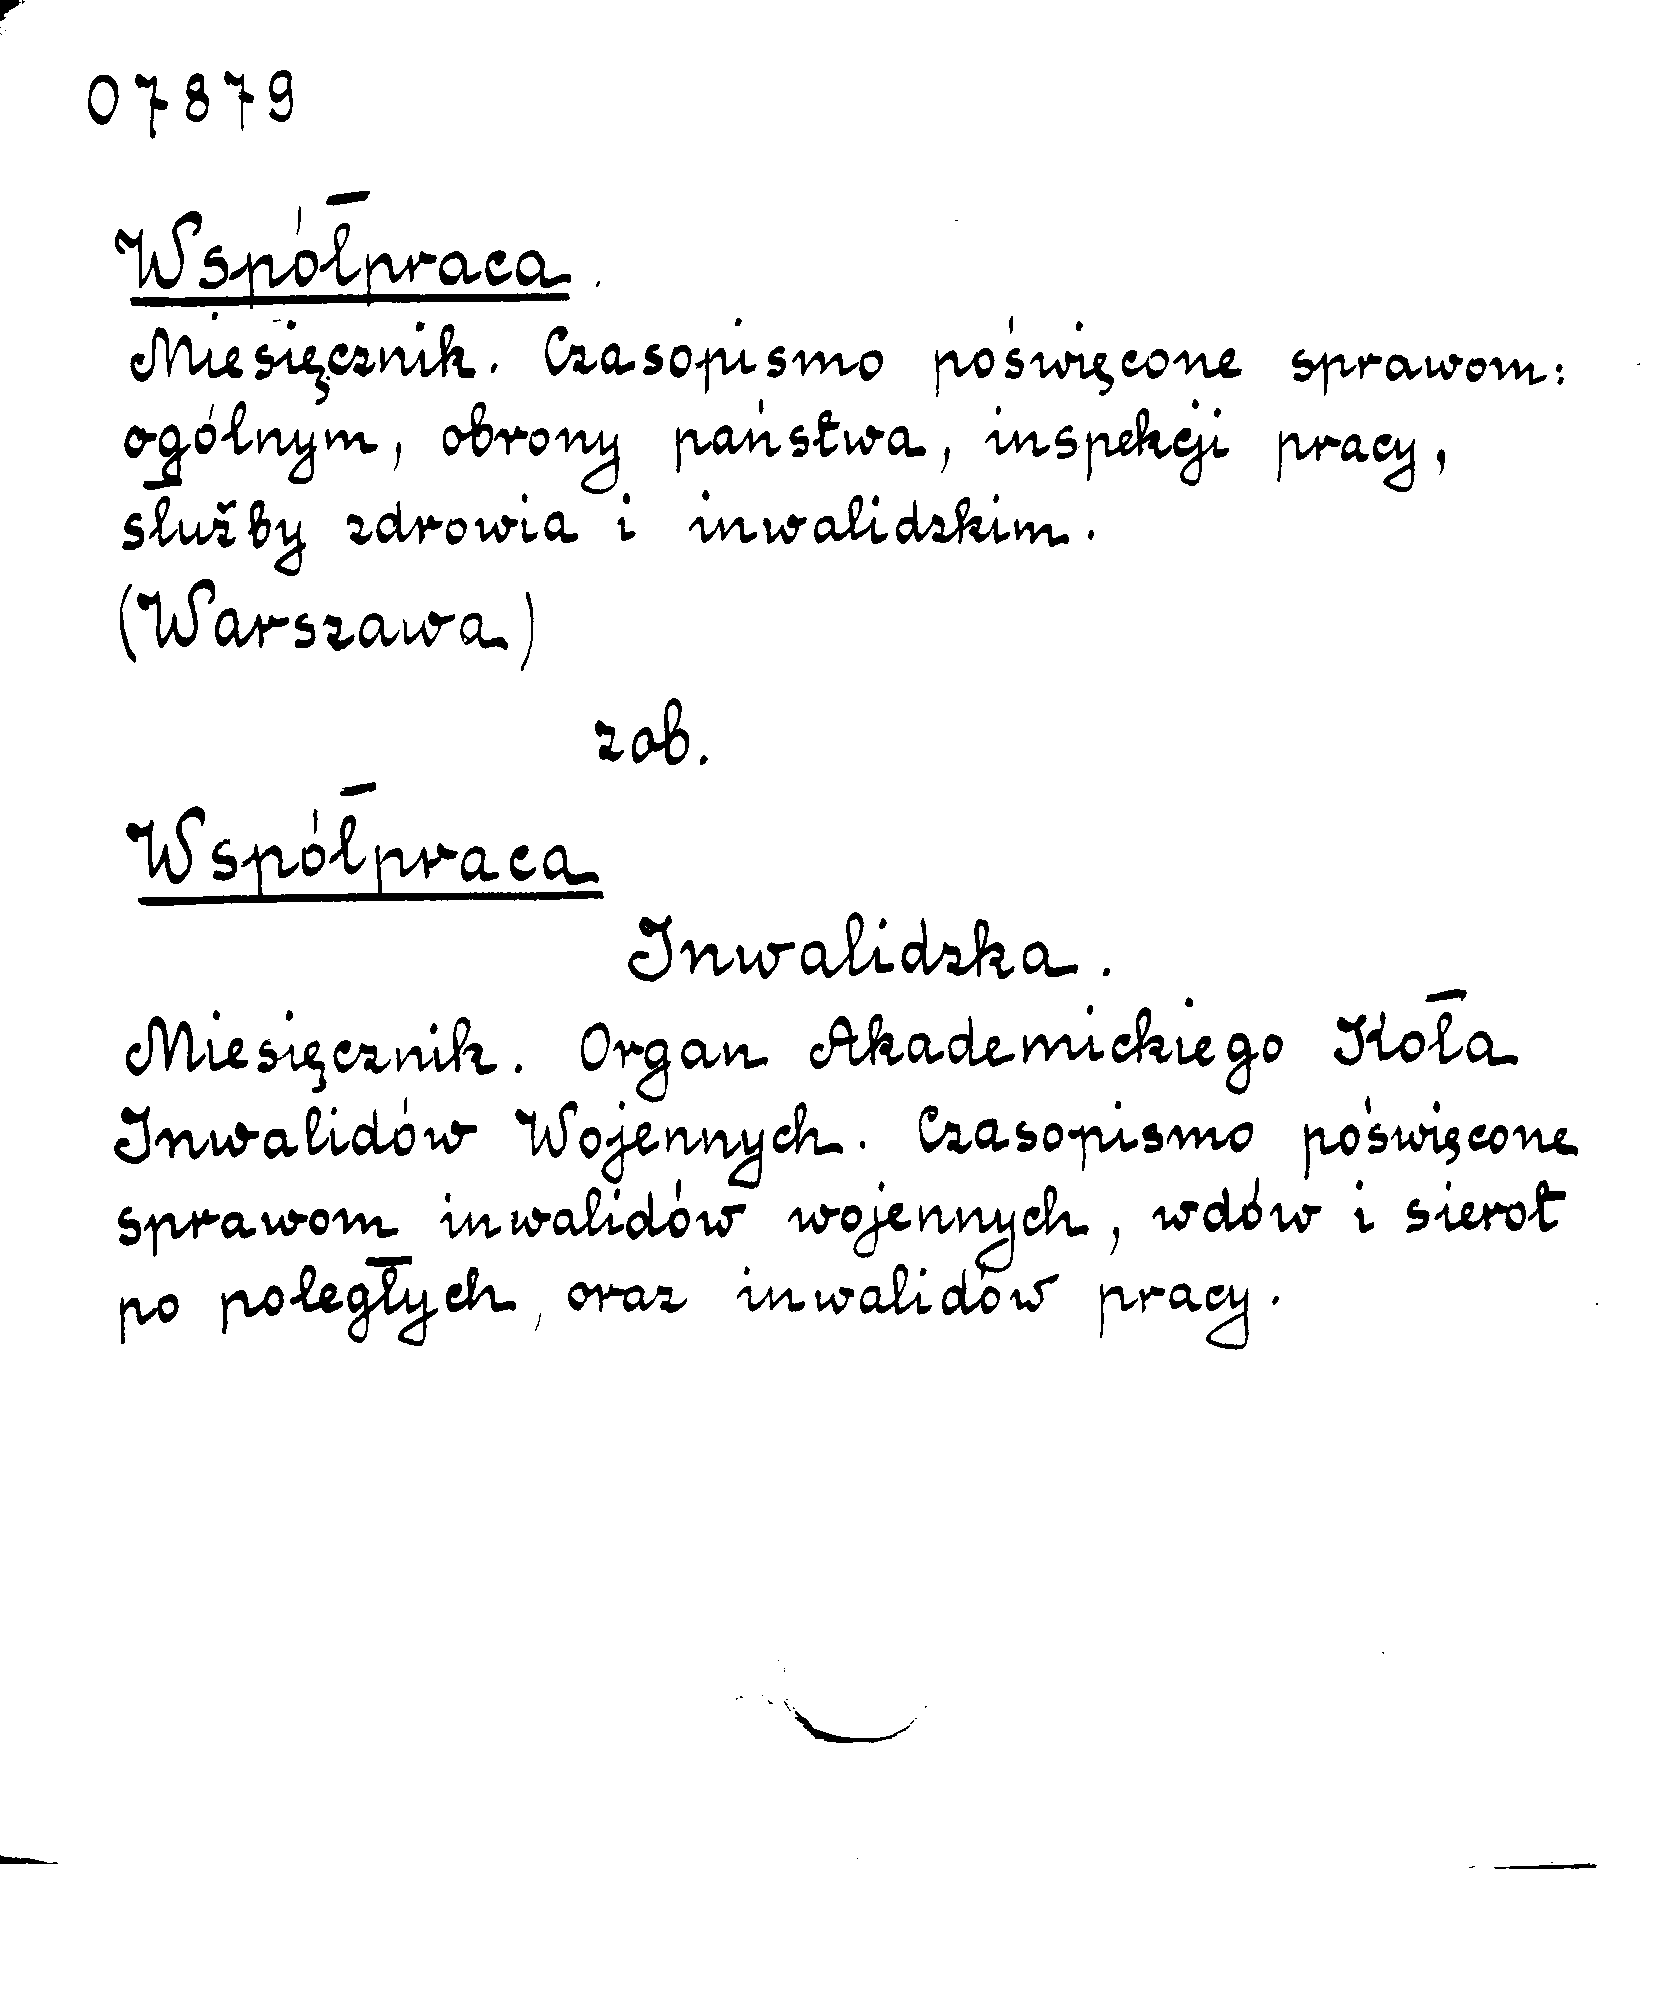 07879
Współpraca.
Miesięcznik. Czasopismo poświęcone sprawom:
ogólnym, obrony państwa, inspekcji pracy,
służby zdrowia i inwalidzkim.
(Warszawa)
zob.
Współpraca
Inwalidzka.
Miesięcznik. Organ Akademickiego Koła
Inwalidów Wojennych. Czasopismo poświęcone
sprawom inwalidów wojennych, wdów i sierot
po poległych, oraz inwalidów pracy.